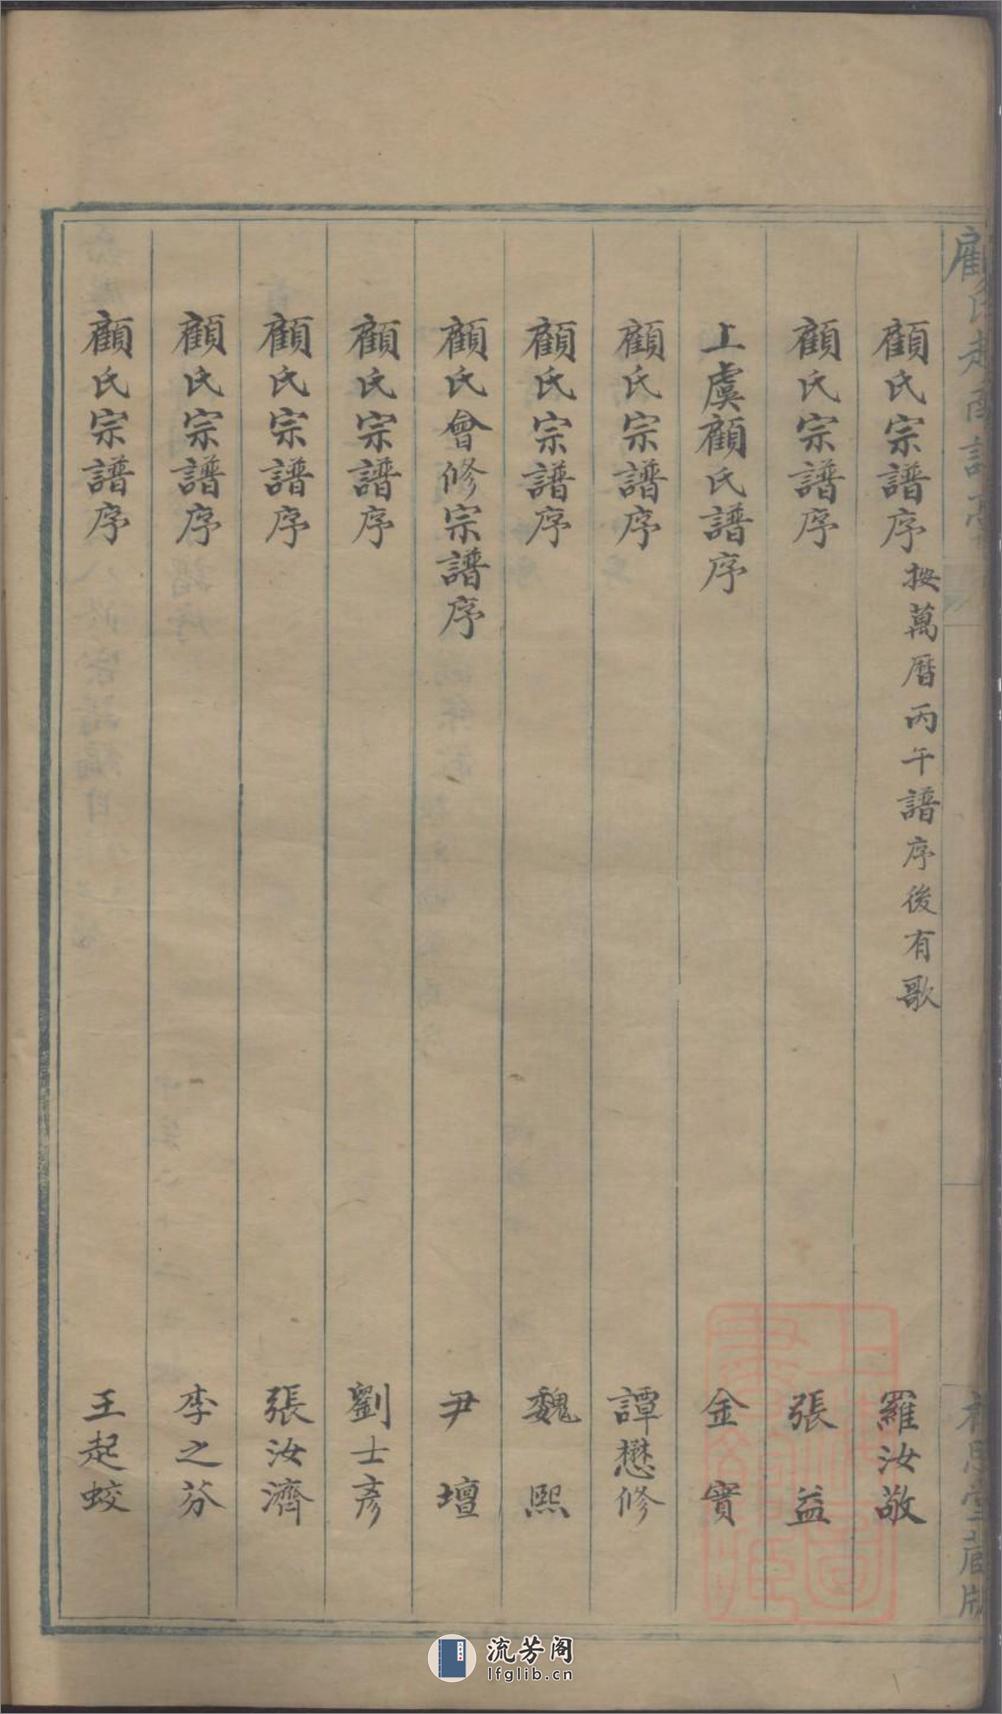 顧氏宗譜序 按萬曆丙午譜序後有歌 羅汝敬
顧氏宗譜序 張益
上虞顧氏譜序 金實
顧氏宗譜序 譚懋修
顧氏宗譜序 魏熙
顧氏會修宗譜序 尹壇
顧氏宗譜序 劉士彥
顧氏宗譜序 張汝濟
顧氏宗譜序 李之芬
顧氏宗譜序 王起蛟
流芳阁
lfglib.cn